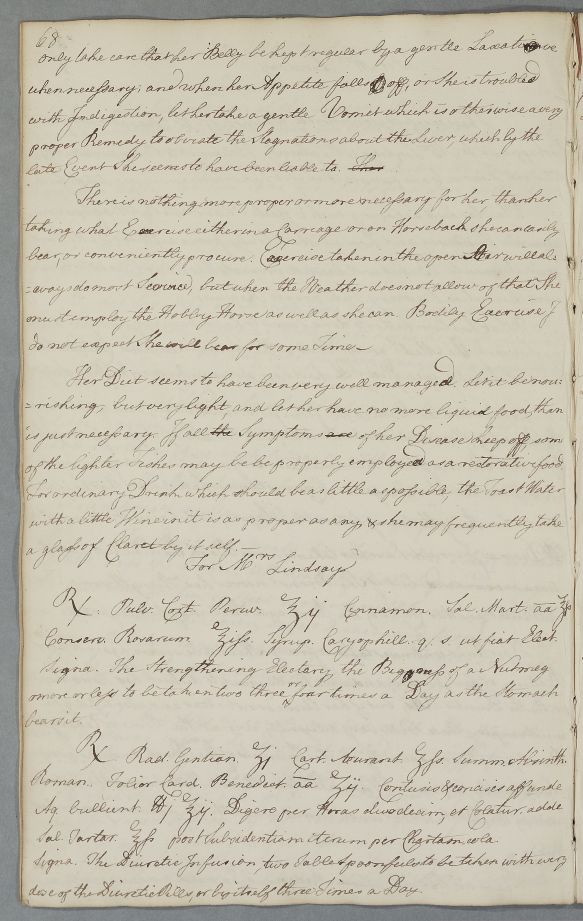 68
only take care that her Belly be kept regular by a gentle Laxative
when necessary; and when her Appetite falls off, or She is troubled
with Indigestion, let her take a gentle Vomit which is otherwise a very
proper Remedy to obviate the Stagnations about the Liver, which by the
late Event She seems to have been liable to.
There is nothing more proper or more necessary for her than her
taking what Exercise either in a Carriage or on Horseback she can easily
bear, or conveniently procure. Exercise taken in the open Air will al
=ways do most Service, but when the Weather does not allow of that She
must employ the Hobby Horse as well as she can. Bodily Exercise I
do not expect She will bear for some Time
Her Diet seems to have been very well managed. Let it be nou
=rishing, but very light and let her have no more liquid food, than
is just necessary. If all the Symptoms of her Disease keep off, some
of the lighter Fishes may be be properly employed as a restorative food
For ordinary Drink which should be as little as possible, the Toast Water
with a little Wine in it is as proper as any & she may frequently take
a glass of Claret by it self.
For Mrs Lindsay
℞. Pulv. Cort. Peruv. ʒij Cinnamon. Sal. Mart. aa ʒſs
Conserv. Rosarum ʒiſs. Syrup. Caryophill. q. s. ut fiat Elect.
Signa. The Strengthening Electary, the Bigness of a Nutmeg
more or less to be taken two three or four times a Day as the Stomach
bears it.
℞ Rad. Gentian. ʒj Cort. Aurant. ʒſs. Summ. Absinth.
Roman. Folior Card. Benedict. aa ʒij. Contusis & concisis affunde
Aq. bullient. ℔j ʒij. Digere per Horas duodecim, et Colatur. adde
Sal. Tartar. ʒſs post Subsidentiam iterum per Chartam cola.
Signa. The Diuretic Infusion, two Tablespoonfuls to be taken with every
dose of the Diuretic Pills, or by itself three Times a Day.